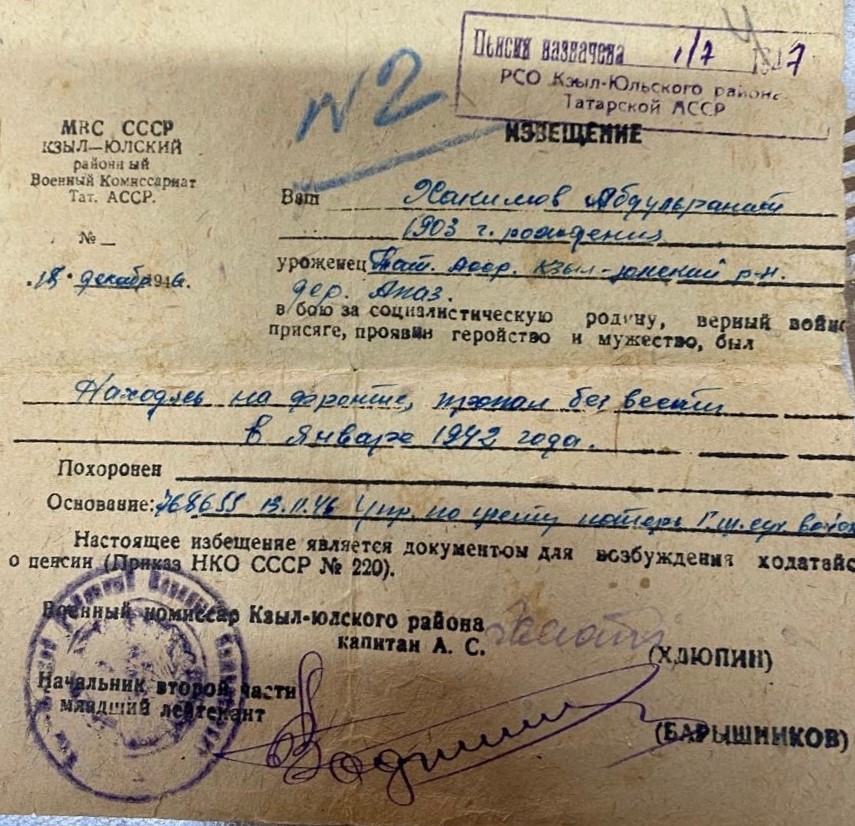 Пенсия назначена 1/7 1947
РСО Кзыл-Юльского района
Татарской АССР
№ 2
ИЗВЕЩЕНИЕ
МВС СССР
КЗЫЛ—ЮЛСКИЙ
районный
Военный Комиссариат
Тат. АССР.
№
18 декабр 1946.
Ваш Хакимов Абдулганит
1903 г. рождения
уроженец Тат. АССР. Кзыл-юлский р-н.
дер. Апаз.
в бою за социалистическую родину, верный воин
присяге, проявив геройство и мужество, был
Находясь на фронте, пропал без вести
в январе 1942 года.
Похоронен
Основание: 768655 13.11.46 Упр. по учету потерь Г.ш. сух.
Настоящее избещение является документом для возбуждения ходатайс
о пенсии (Приказ НКО СССР № 220).
Военный комиссар Кзыл-юлского района
капитан А. С.
(ХЛЮПИН)
Начальник второй части
младший лейтенант
(БАРЫШНИКОВ)